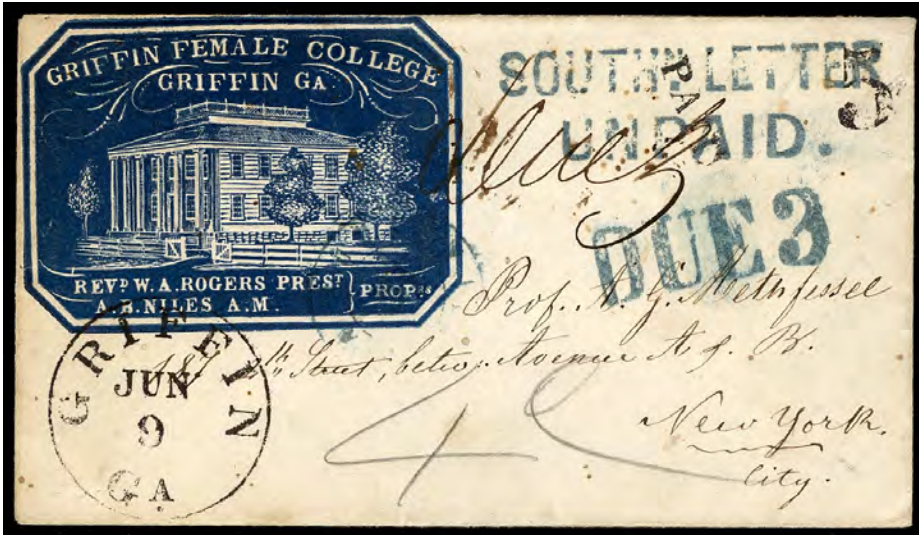 GRIFFIN FEMALE COLLEGE
GRIFFIN GA.
REVD W. A. ROGERS PREST
A. B. NILES A.M.
PROPRS
SOUTHN. LETTER
UNPAID.
PAID
5
due 3
DUE 3
Prof. A. G. Methfessel
Street, betw. Avenue A & B.
New York.
City.
GRIFFIN
JUN
9
GA